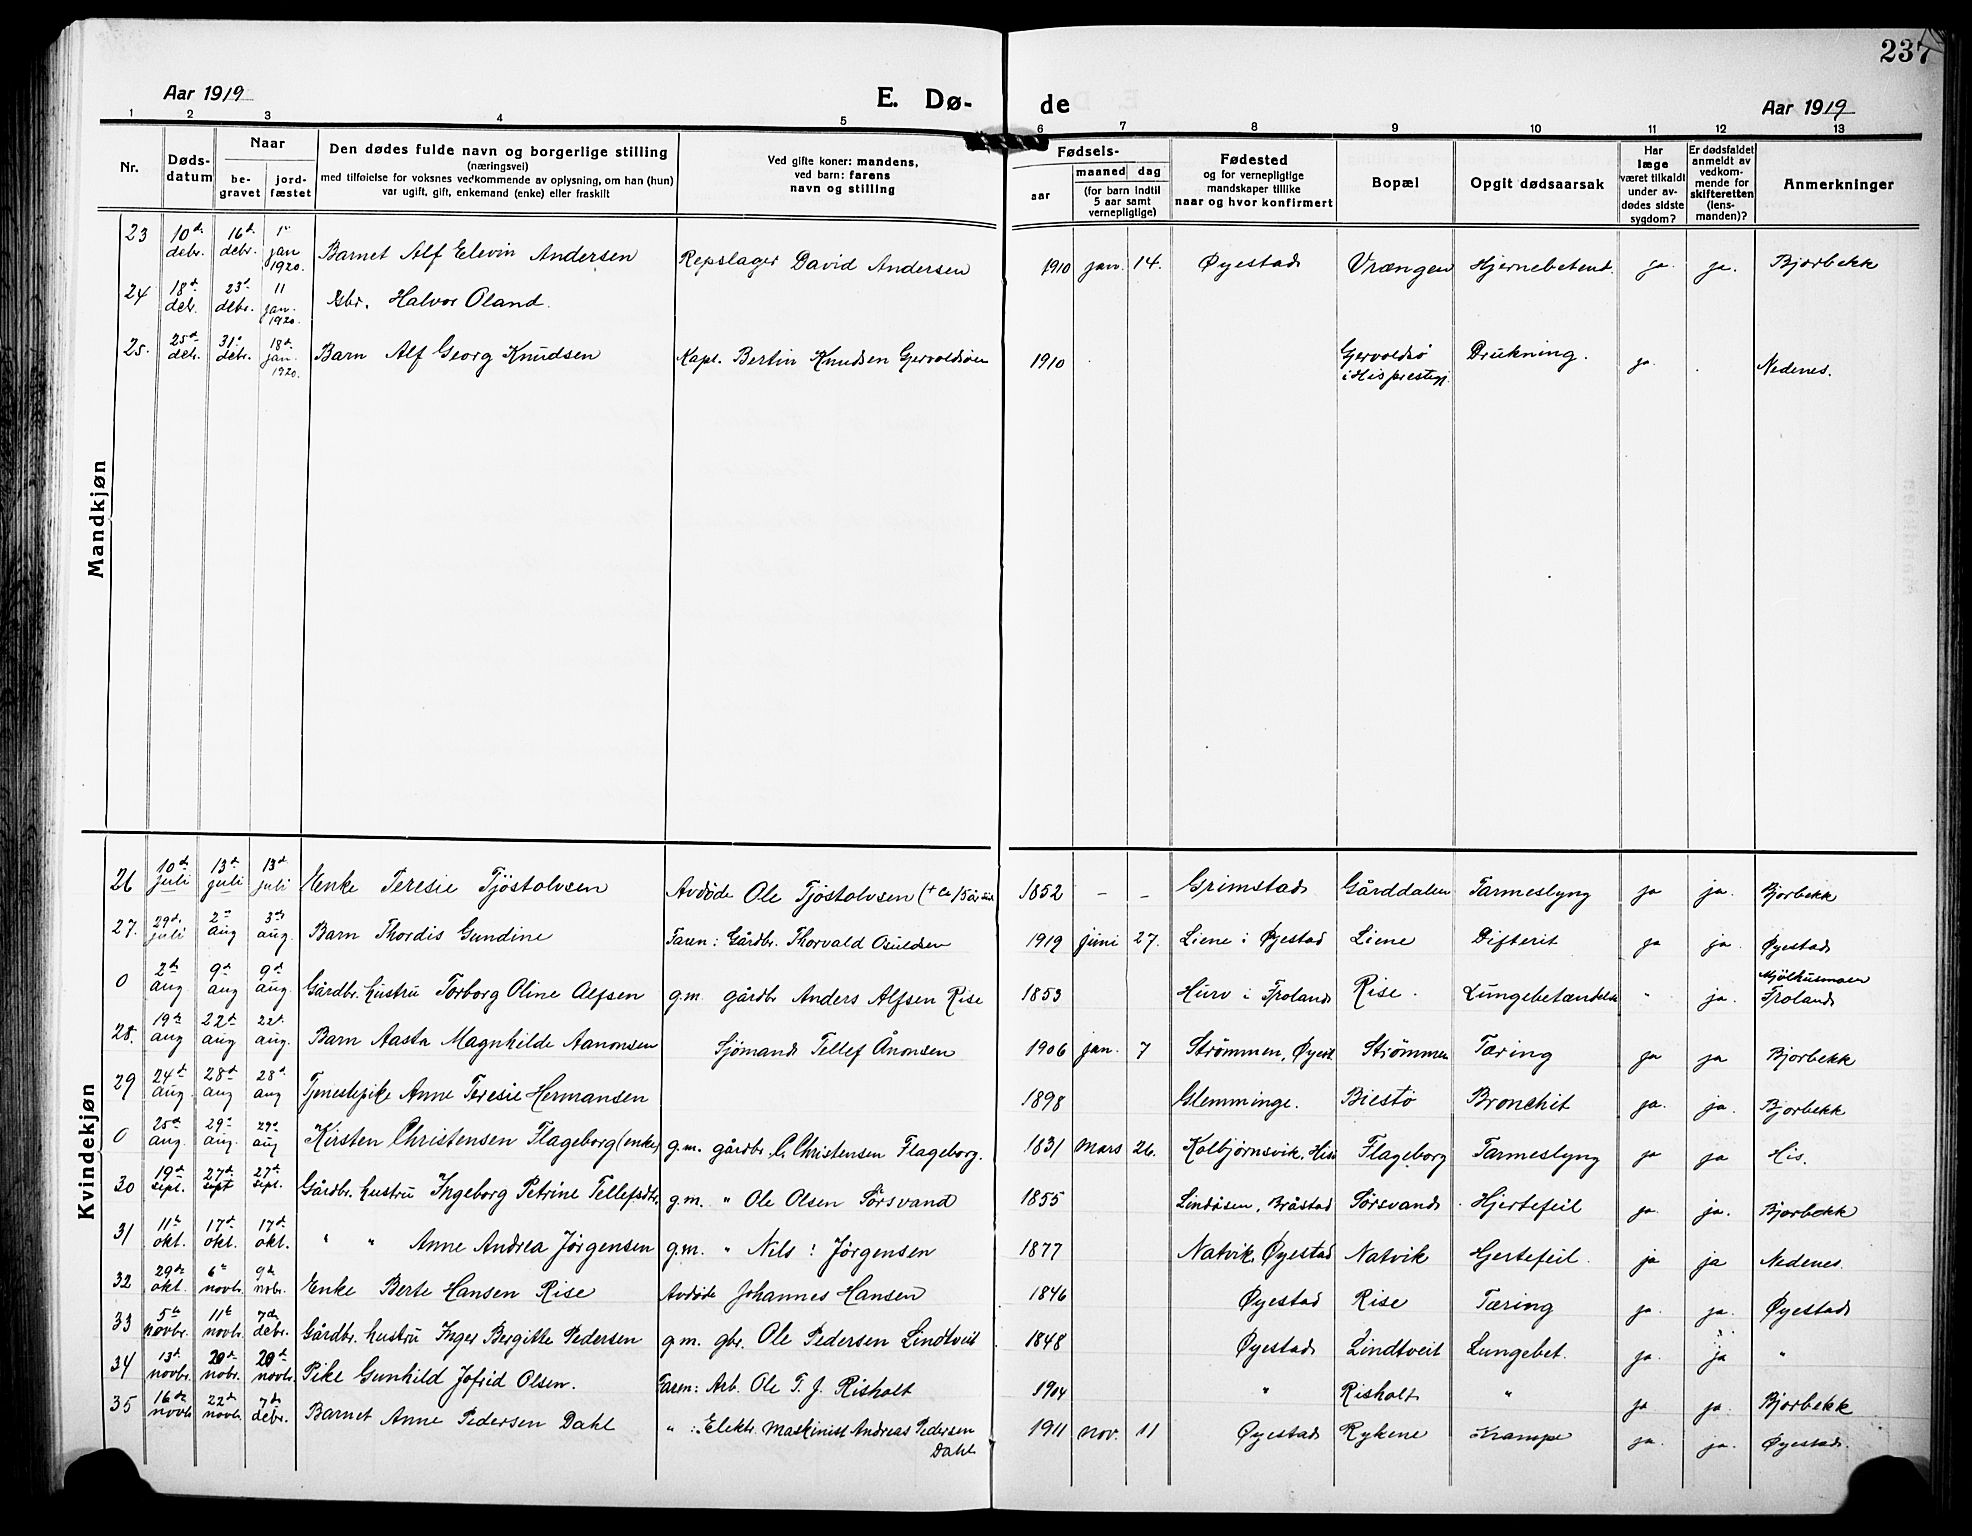 237
Aar 1919
E. Dø-
de
Aar 1919
1 2 3 4 5 6 7 8 9 10 11 12 13
Nr.
Døds-
datum
Naar
be-
gravet
jord-
fæstet
Den dødes fulde navn og borgerlige stilling
(næringsvei)
med tilføielse for voksnes vedkommende av oplysning, om han (hun)
var ugift, gift, enkemand (enke) eller fraskilt
Ved gifte koner: mandens,
ved barn: farens
navn og stilling
Fødsels-
aar
maaned dag
(for barn indtil
5 aar samt
vernepligtige)
Fødested
og for vernepligtige
mandskaper tillike
naar og hvor konfirmert
Bopæl
Opgit dødsaarsak
Har
læge
været tilkaldt
under av-
dødes sidste
sygdom?
Er dødsfaldet
anmeldt av
vedkom-
mende for
skifteretten
(lens-
manden)?
Anmerkninger
Mandkjøn
23 10de debr. 16de debr. 1ste jan 1920. Barnet Alf Elevin Andersen Repslager David Andersen 1910 jan. 14. Øyestad Vrængen Hjernebetend. ja. ja. Bjorbekk
24 18de deb. 23de debr. 11 jan. 1920. Gbr. Halvor Oland.
25. 25de deb. 31te debr. 18de jan. 1920. Barn Alf Georg Knudsen Kapt. Bertin Knudsen Gervoldsøen 1910 Gervoldsø i His prestegj. Drukning. ja. Nedenes.
Kvindekjøn
26 10de juli 13de juli 13de juli Enke Teresie Tjøstolvsen Avdøde Ole Tjøstolvsen 1852 - - Grimstad Gårddalen Tarmeslyng ja ja. Bjorbekk
27. 29de juli 2den aug 3die aug. Barn Thordis Gundine Faren: Gårdbr. Thorvald Osuldsen 1919 juni 27. Liene i Øjestad Liene Difterit ja ja. Øyestad
0 2de aug 9de aug 9de aug. Gårdbr. hustru Torborg Oline Alfsen g.m. gårdbr Anders Alfsen Rise 1853 Hurv i Froland Rise. Lungebetændelse " ja. Mjølhusmoen Froland
28. 19de aug 22de aug 22de aug. Barn Aasta Magnhilde Aanonsen Sjømand Tellef Ånonsen 1906 jan. 7 Strømmen, Øyest. Strømmen Tæring ja ja Bjorbekk
29 24de aug 28de aug 28de aug Tjenestepike Anne Teresie Hermansen 1898 Glemminge. Biestø Bronchit ja. ja. Bjorbekk
0 25de aug. 29de aug. 29de aug Kirsten Christensen Flageborg (enke) g.m. gårdbr. C. Christensen Flageborg. 1831 mars 26. Kolbjørnsvik, His Flageborg Tarmeslyng ja ja His.
30 19de sept. 27de sept 27de sept. Gårdbr. hustru Ingeborg Petrine Tellefsdtr. g.m. " Ole Olsen Sørsvand 1855 Lindåsen, Bråstad Sørsvand. Hjertefeil ja. ja. Bjorbekk
31 11te okt. 17de okt. 17de okt. " " Anne Andrea Jørgensen g.m. " Nils : Jørgensen 1877 Natvik, Øyestad Natvik Gertefeil. ja ja Nedenes.
32 29de okt. 6te novbr. 9de nobr. Enke Berte Hansen Rise Avdøde Johannes Hansen 1846 Øyestad Rise Tæring ja. ja. Øyestad
33 5te novbr. 11te novbr. 7de debr. Gårdbr. hustru Inger Bergitte Pedersen g.m. gbr. Ole Pedersen Lindtveit 1848 Øyestad Lindtveit Lungebet. ja. ja "
34 13de novbr. 20de nobr. 20de novbr. Pike Gunhild Jofrid Olsen. Faren: Arb. Ole T. J. Risholt 1904 " Risholt " ja ja. Bjorbekk
35 16de novbr 22de novbr 7de debr. Barnet Anne Pedersen Dahl " : Elektr. Maskinist Andreas Pedersen Dahl 1911 nov. 11 Øyestad Rykene Krampe ja. ja. Øyestad.